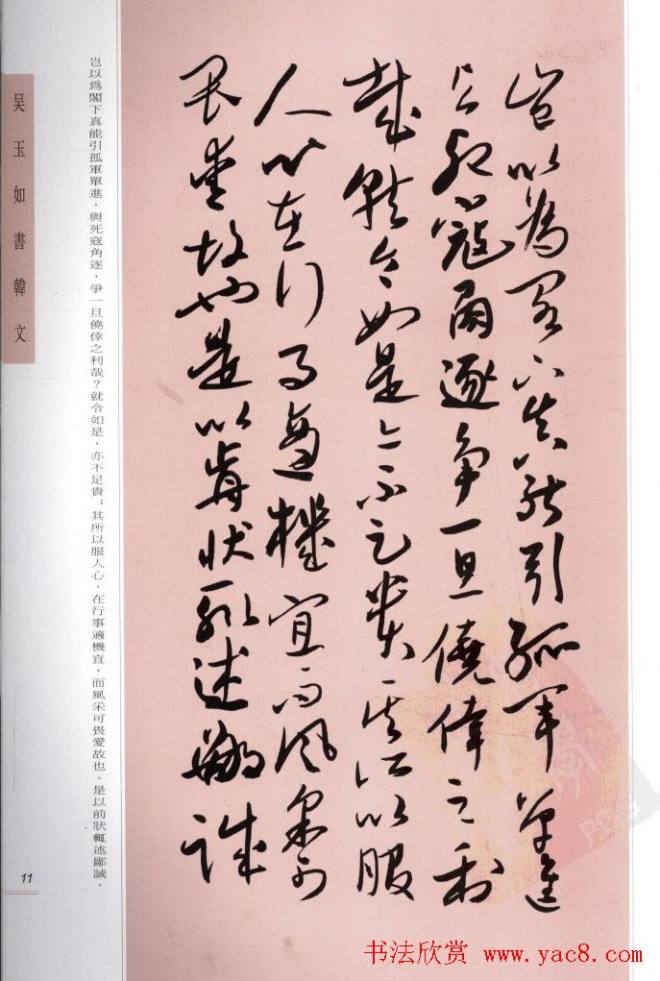 豈以為閣下真能引孤軍單進
與死寇角逐爭一旦僥倖之利
哉就令如是亦不足貴其所以服
人心在行事適機宜而風采可
畏愛故也是以前狀輒述鄙誠
豈以爲閣下真能引孤軍單進，與死寇角逐，爭一旦僥倖之利哉？就令如是，亦不足貴。其所以服人心，在行事適機宜，而風采可畏愛故也。是以前狀輒述鄙誠，
吴玉如書韓文
11
书法欣赏 www.yac8.com
PDG